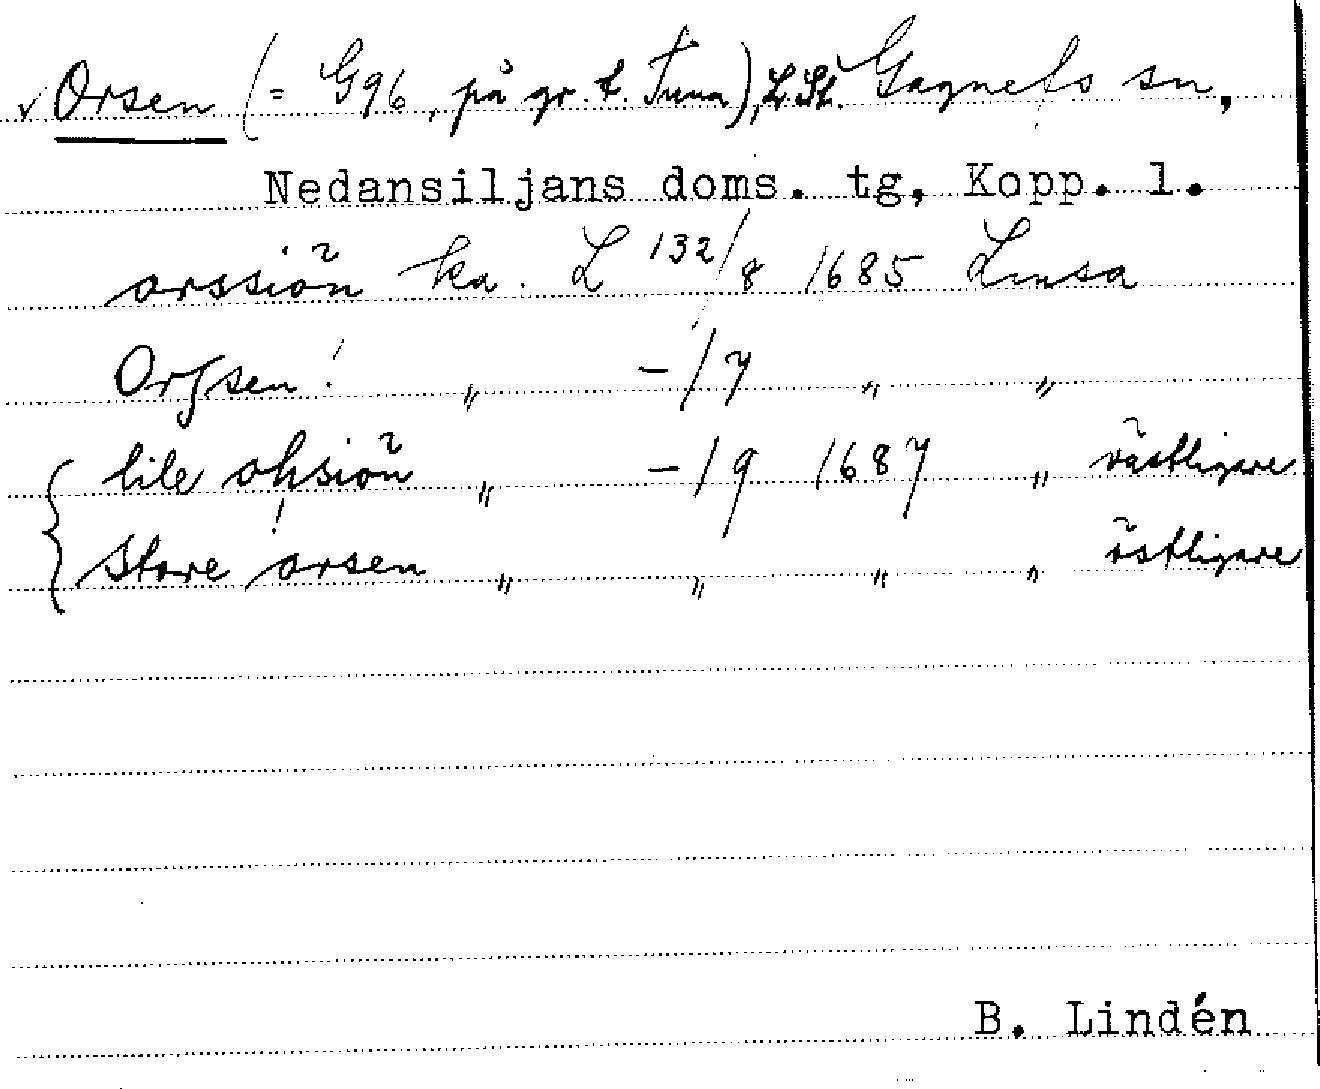 v Orsen (= G96, på gr. t. Tuna), L. St. Gagnefs sn,
Nedansiljans doms. tg, Kopp. l.
orssiön ka. L 132/8 1685
Orssen! " -/7 " "
lile ohsiön " -/9 1687 " västligare
store orsen " " " " östligare
B. Lindén